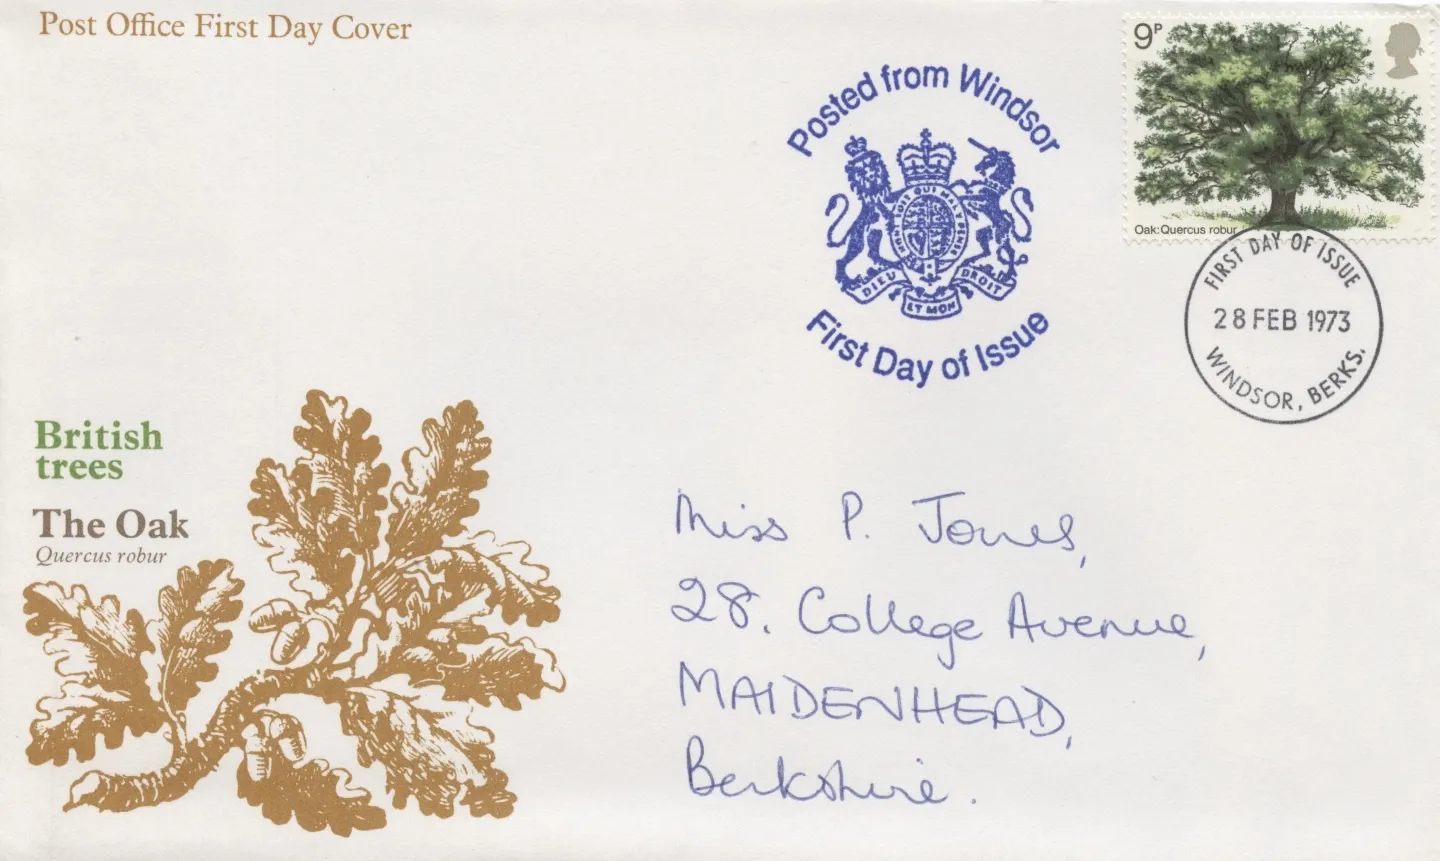 Post Office First Day Cover
9P
Oak: Quercus robur
Posted from Windsor
HONI SOIT QUI MAL Y PENSE
DIEU ET MON DROIT
First Day of Issue
FIRST DAY OF ISSUE
28 FEB 1973
WINDSOR, BERKS.
British
trees
The Oak
Quercus robur
Miss P. Jones,
28. College Avenue,
MAIDENHEAD,
Berkshire.